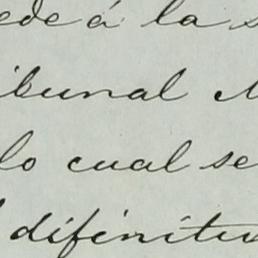 ede á la s
ibunal M
lo cual se
difinitiv